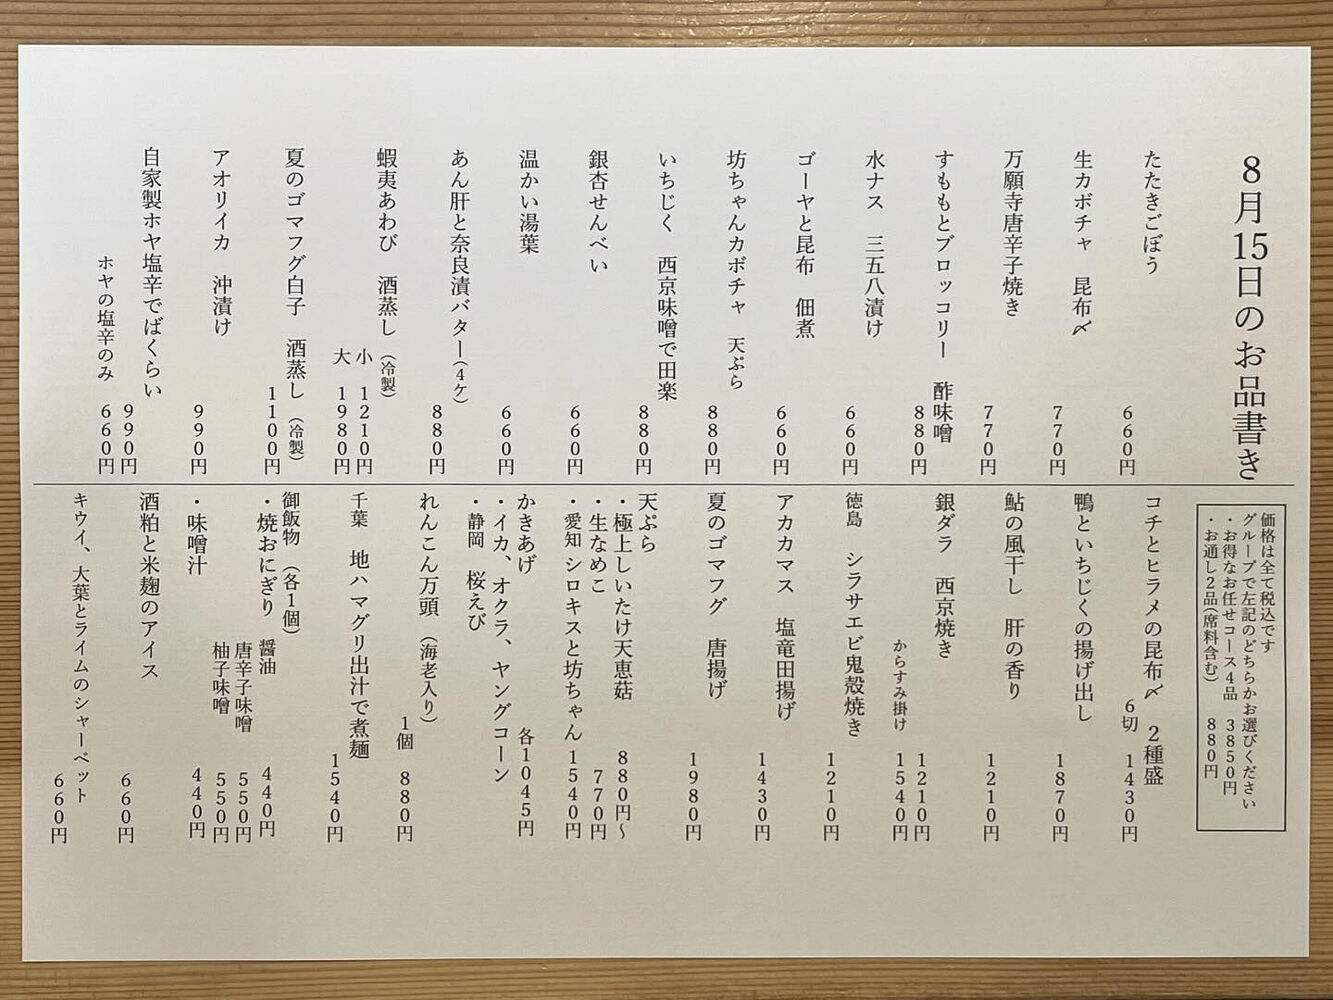 8月15日のお品書き
たたきごぼう 660円
生カボチャ 昆布〆 770円
万願寺唐辛子焼き 770円
すももとブロッコリー 酢味噌 880円
水ナス 三五八漬け 660円
ゴーヤと昆布 佃煮 660円
坊ちゃんカボチャ 天ぷら 880円
いちじく 西京味噌で田楽 880円
銀杏せんべい 660円
温かい湯葉 660円
あん肝と奈良漬バター(4ケ) 880円
蝦夷あわび 酒蒸し(冷製)
小 1210円
大 1980円
夏のゴマフグ白子 酒蒸し(冷製)
1100円
アオリイカ 沖漬け 990円
自家製ホヤ塩辛でばくらい 990円
ホヤの塩辛のみ 660円
価格は全て税込です
グループで左記のどちらかお選びください
・お得なお任せコース4品 3850円
・お通し2品(席料含む) 880円
コチとヒラメの昆布〆 2種盛
6切 1430円
鴨といちじくの揚げ出し 1870円
鮎の風干し 肝の香り 1210円
銀ダラ 西京焼き 1210円
からすみ掛け 1540円
徳島 シラサエビ鬼殻焼き 1210円
アカカマス 塩竜田揚げ 1430円
夏のゴマフグ 唐揚げ 1980円
天ぷら
・極上しいたけ天恵菇 880円〜
・生なめこ 770円
・愛知 シロキスと坊ちゃん 1540円
かきあげ 各1045円
・イカ、オクラ、ヤングコーン
・静岡 桜えび
れんこん万頭(海老入り)
1個 880円
千葉 地ハマグリ出汁で煮麺
1540円
御飯物(各1個)
・焼おにぎり 醤油 440円
唐辛子味噌 550円
柚子味噌 550円
・味噌汁 440円
酒粕と米麹のアイス 660円
キウイ、大葉とライムのシャーベット
660円